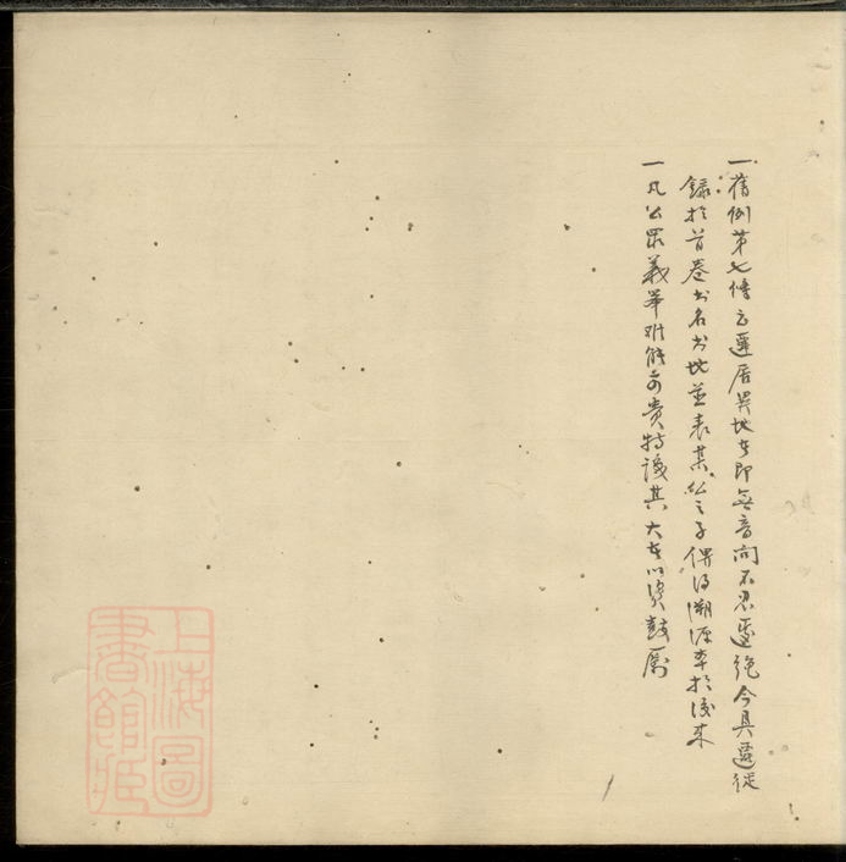 一舊例第七條云遷居異地者即無音問不忍遽絕今具遷徙
錄於首卷書名書地並表某公之子俾得溯源本於後來
一凡公眾義舉難能可貴特識其大者以資鼓勵
上海圖
書館藏